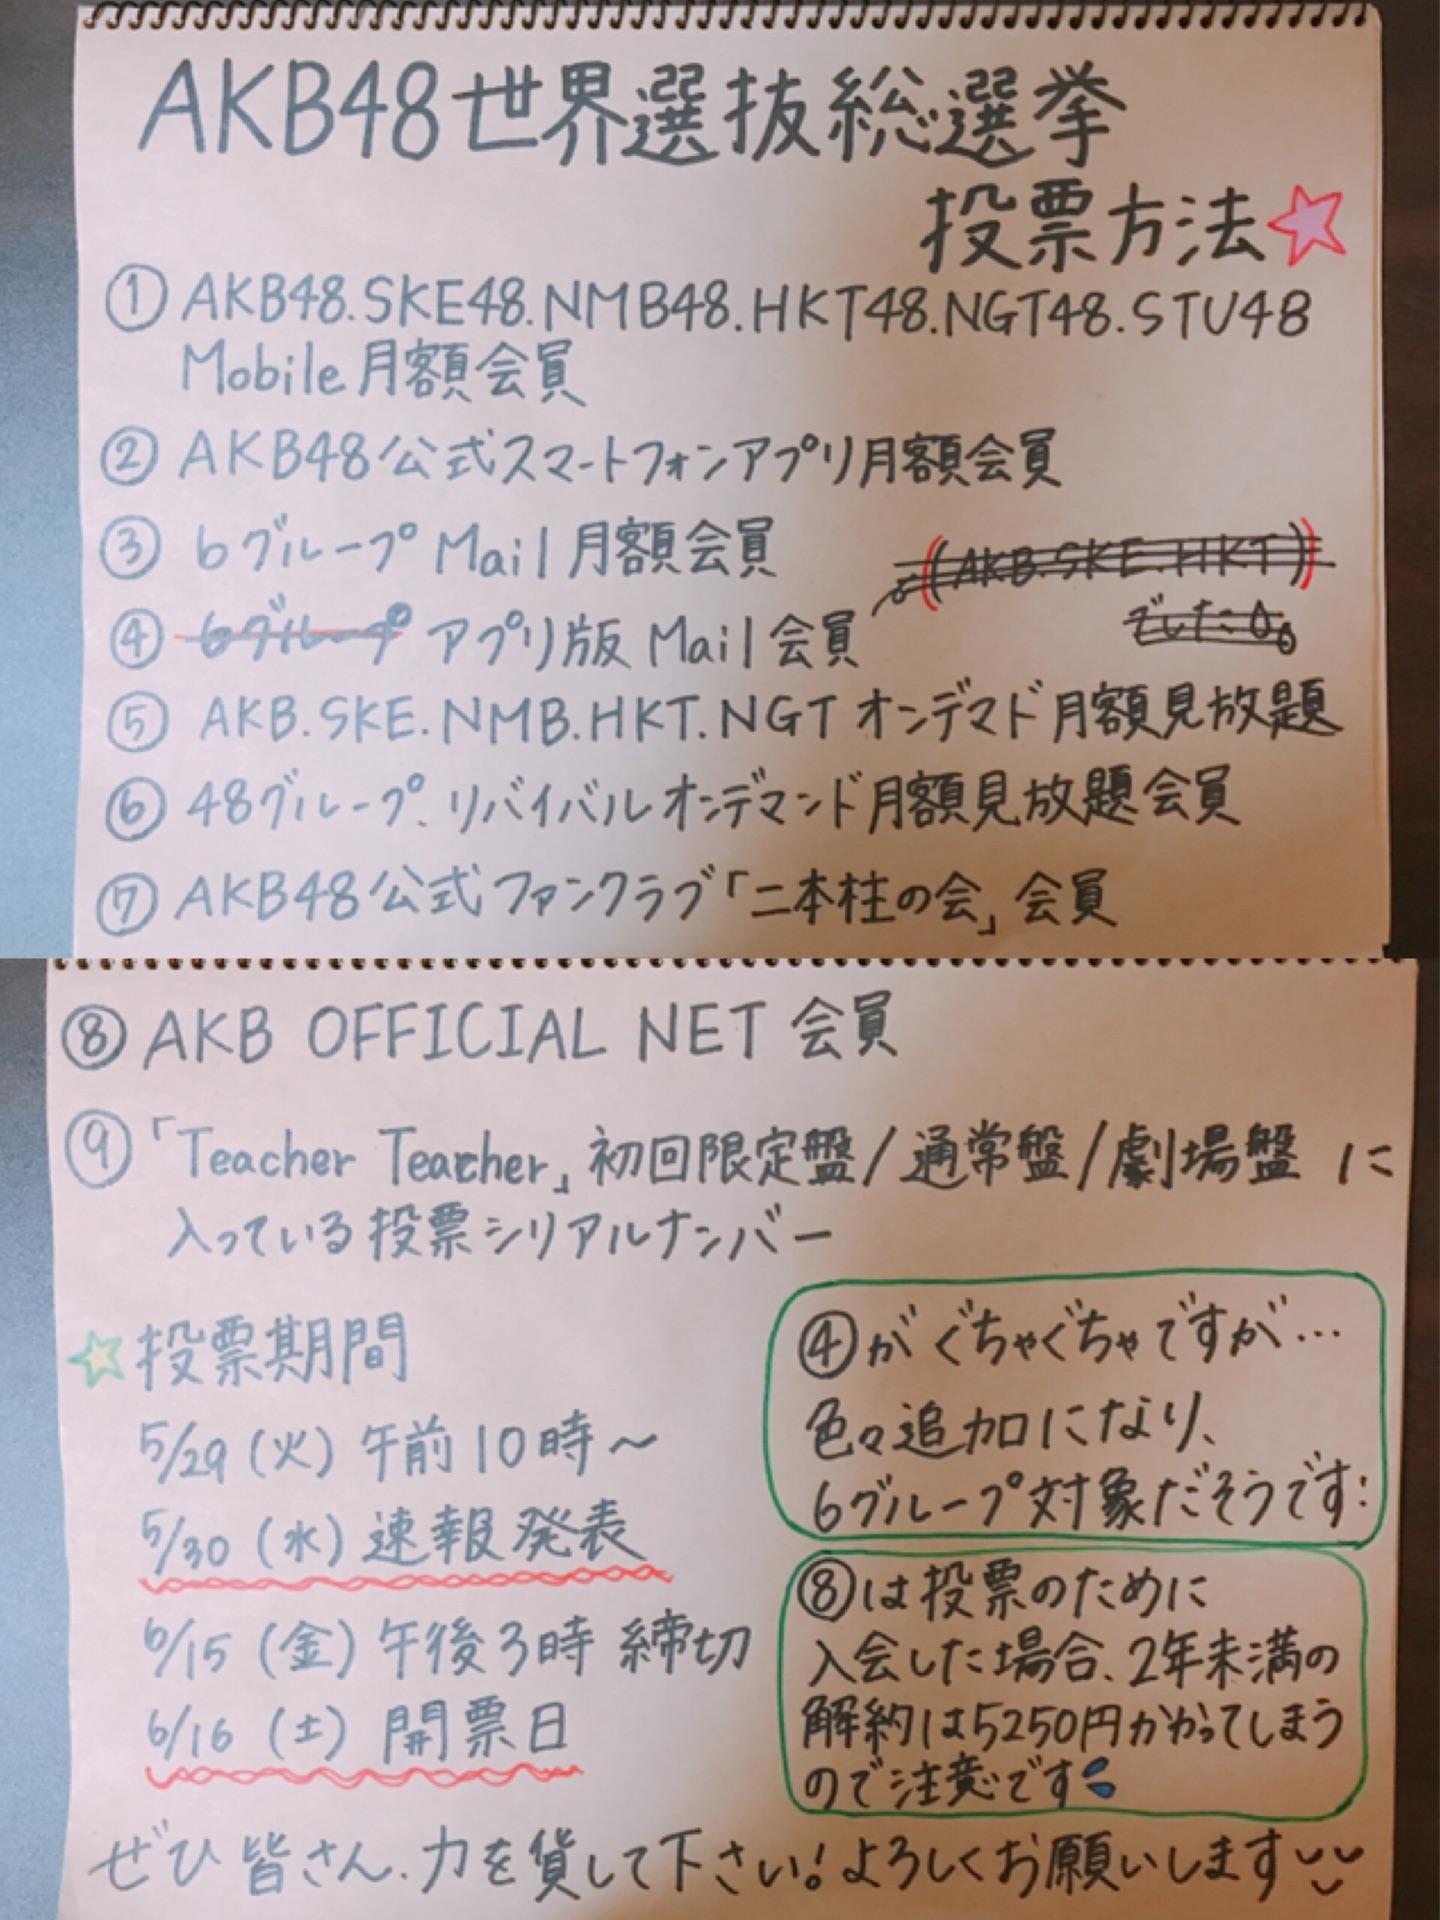 AKB48世界選抜総選挙
投票方法
① AKB48.SKE48.NMB48.HKT48.NGT48.STU48
Mobile月額会員
② AKB48公式スマートフォンアプリ月額会員
③ 6グループMail月額会員
(AKB.SKE.HKT)
でした
④ 6グループ アプリ版Mail会員
⑤ AKB.SKE.NMB.HKT.NGT オンデマド月額見放題
⑥ 48グループ.リバイバルオンデマンド月額見放題会員
⑦ AKB48公式ファンクラブ「二本柱の会」会員
⑧ AKB OFFICIAL NET 会員
⑨「Teacher Teacher」初回限定盤/通常盤/劇場盤 に
入っている投票シリアルナンバー
☆投票期間
5/29(火)午前10時~
5/30(水)速報発表
6/15(金)午後3時 締切
6/16(土)開票日
④がぐちゃぐちゃですが…
色々追加になり、
6グループ対象だそうです:
⑧は投票のために
入会した場合、2年未満の
解約は5250円かかってしまう
ので注意です
ぜひ皆さん、力を貸して下さい!よろしくお願いします